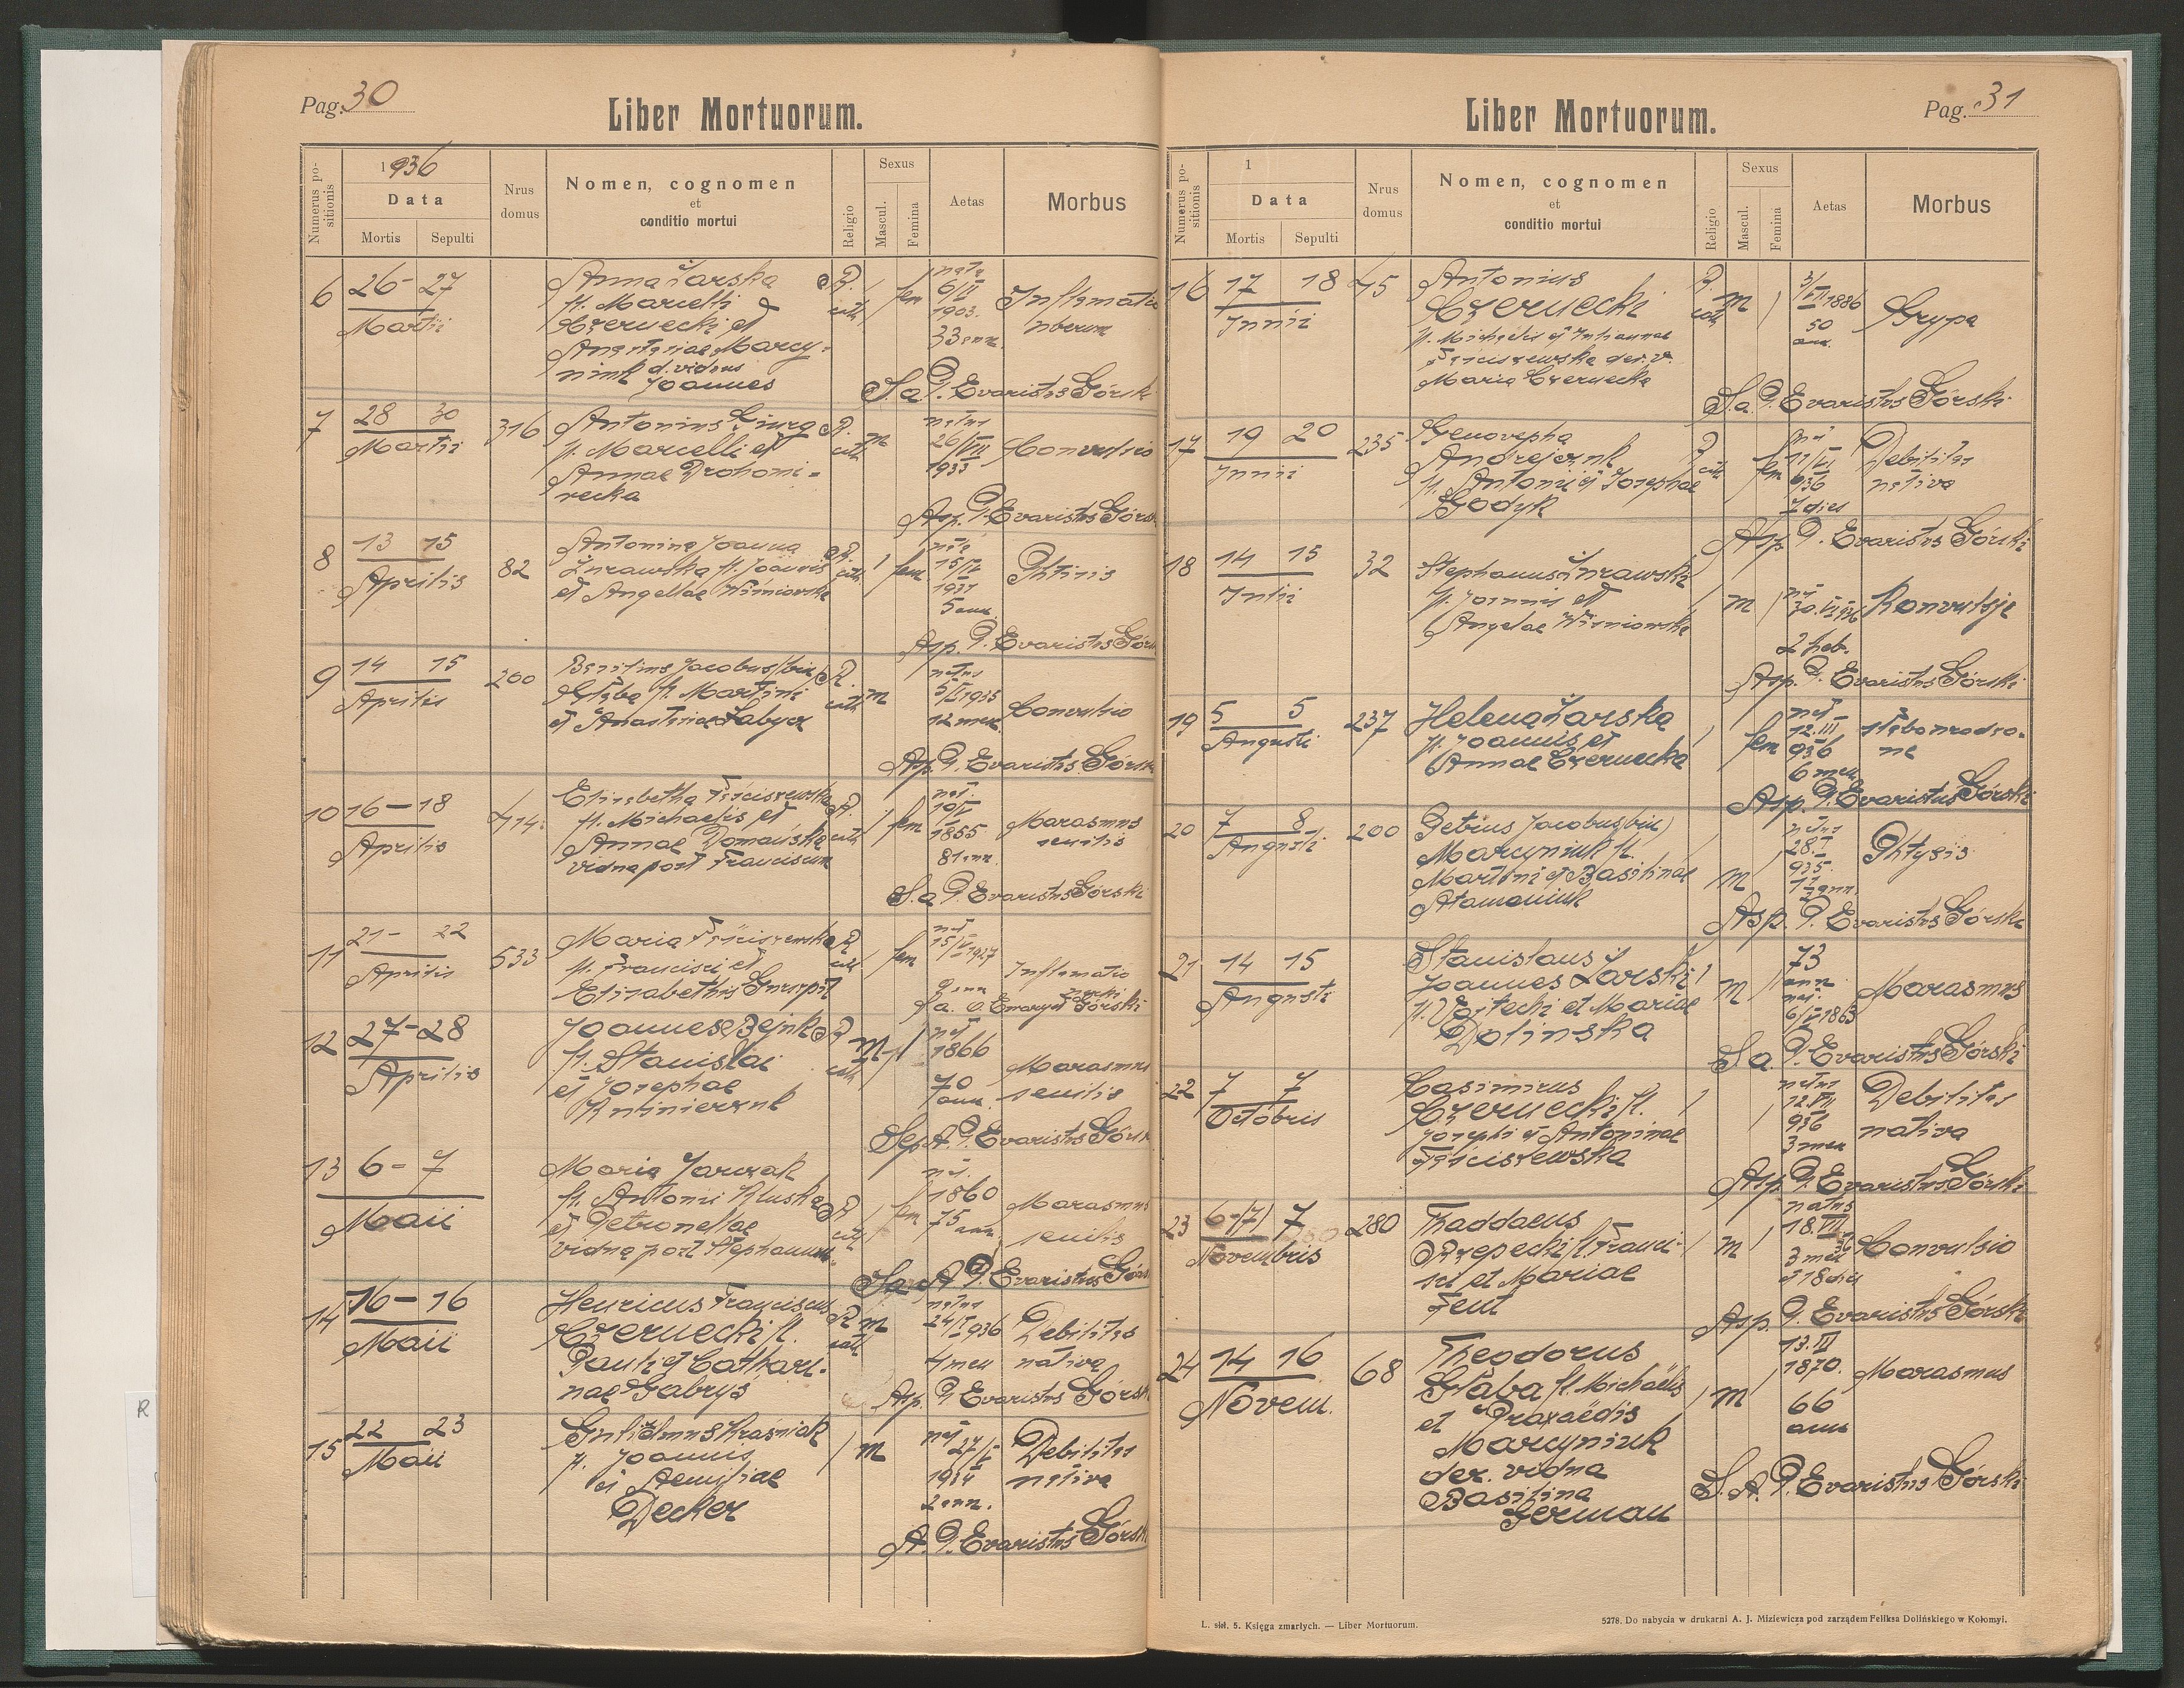 Pag. 30
Liber Mortuorum.
Numerus positionis
1936
Data
Mortis
Sepulti
Nrus domus
Nomen, cognomen
et
conditio mortui
Religio
Sexus
Mascul.
Femina
Aetas
Morbus
6 26 - 27 Martii
Anna Żarska
fl. Marcelli
Czernecki et
Anastasiae Marcy-
niuk d. viduus
Joannes
R. cath. fem
nata
6/II
1903.
33 ann.
S. a P. Evaristus Górsk
7 28 30 Martii 316
Antonius
fl. Marcelli et
Annae Drohomi-
recka
R. cath. m
natus
26/VII
1933
Convulsio
Asp. P. Evaristus Górsk
8 13 15 Aprilis 82
Antonina Joanna
Żurawska fl. Joannis
et Angellae Wiśniowska
R. cath. 1 fem
nata
15/IV
1931
5 ann.
Phtisis
Asp. P. Evaristus Górs
9 14 15 Aprilis 200
Jacobus (bin.)
fl. Martini
et Anastasiae Łabycz
R. cath. m
natus
5/IV 1935
12 men.
Convulsio
Asp. P. Evaristus Górsk
10 16 - 18 Aprilis 414
Elisabetha Feliciszewska
fl. Michaelis et
Annae Domańska
vidua post Franciscum
R. cath. fem
nat.
1855
81 ann.
Marasmus
senilis
S. a P. Evaristus Górski
11 21 - 22 Aprilis 533
Maria
fl. Francisci et
Elisabethis
R. cath. fem
nat
15/V 1927
9 ann
S. a.
Górski
12 27 - 28 Aprilis
Joannes Bejnk
fl. Stanislai
et Josephae
R cath. m
nat
1866
70
ann.
Marasmus
senilis
P. Evaristus Górsk
13 6 - 7 Maii
Maria Jarczak
fl. Antoni Kluska
et Petronellae
vidua post Stephanum
R cath fem
nat.
1860
75 ann.
Marasmus
senilis
P. Evaristus Górs
14 16 - 16 Maii
Henricus Franciscus
Czernecki fl.
Pauli et Cathari-
nae Gabryś
R cath m
natus
24/I 1936
4 men
Debilitas
nativa
Asp. P Evaristus Górsk
15 22 23 Maii
Gulielmus Kraśniak
fl. Joannis
et Aemiliae
Decker
/ m
27/V
1934
2 ann.
Debilitas
nativa
A. P. Evaristus Górsk
Liber Mortuorum.
Pag. 31
Numerus positionis
1
Data
Mortis
Sepulti
Nrus domus
Nomen, cognomen
et
conditio mortui
Religio
Sexus
Mascul.
Femina
Aetas
Morbus
16 17 18 Junii 45
Antonius
Czernecki
fl. Michaelis et Juliannae
Feliciszewska der. v.
Maria Czernecka
R. cath m
3/VI 1886
50
ann.
Grypa
S. a. P. Evaristus Górski
17 19 20 Junii 235
Genovepha
Andrejczuk
fl. Antonii et Josephae
Godyk
R cath fem
11/VI
936
7 dies
Debilitas
nativa
Asp. P. Evaristus Górski
18 14 15 Julii 32
Stephanus Żurawski
fl. Joannis et
Angelae Wiśniowska
/ m
30.VI 936
2 heb.
Konwulsje
Asp. P. Evaristus Górski
19 5 5 Augusti 237
Helena Żarska
fl. Joannis et
Annae Czernecka
/ fem
nat
12.III
936
6 men
Asp. P. Evaristus Górski
20 7 8 Augusti 200
Petrus Jacobus (bin)
Marcyniuk fl.
Martini et Basilinae
Atamaniuk
m
natus
28.I
935.
1 1/2 ann.
Phtysis
Asp. P. Evaristus Górski
21 14 15 Augusti
Stanislaus
Joannes Żarski
fl. Vojtechi et Mariae
Dolinska
m
73
ann
nat.
6/V 1863
Marasmus
S a. P. Evaristus Górski
22 7 7 Octobris
Casimirus
Czernecki fl.
Josephi et Antoninae
Feliciszewska
natus
12.VII
936
3 men
Debilitas
nativa
Asp. P. Evaristus Górski
23 6-(7) 7 Novembris 280
Thaddaeus
Rzepecki fl. Franci-
sci et Mariae
Fent
/ m
natus
18.VII
36
3 men
et 18 dies
Convulsio
Asp. P. Evaristus Górski
24 14 16 Novem. 68
Theodorus
Słaba fl. Michaëlis
et Praxaëdis
Marcyniuk
der. vidua
Basilina
German
/ m
13.III
1870.
66
ann
Marasmus
S. A. P. Evaristus Górski
L. skł. 5. Księga zmarłych. — Liber Mortuorum.
5278. Do nabycia w drukarni A. J. Miziewicza pod zarządem Feliksa Dolińskiego w Kołomyi.
R